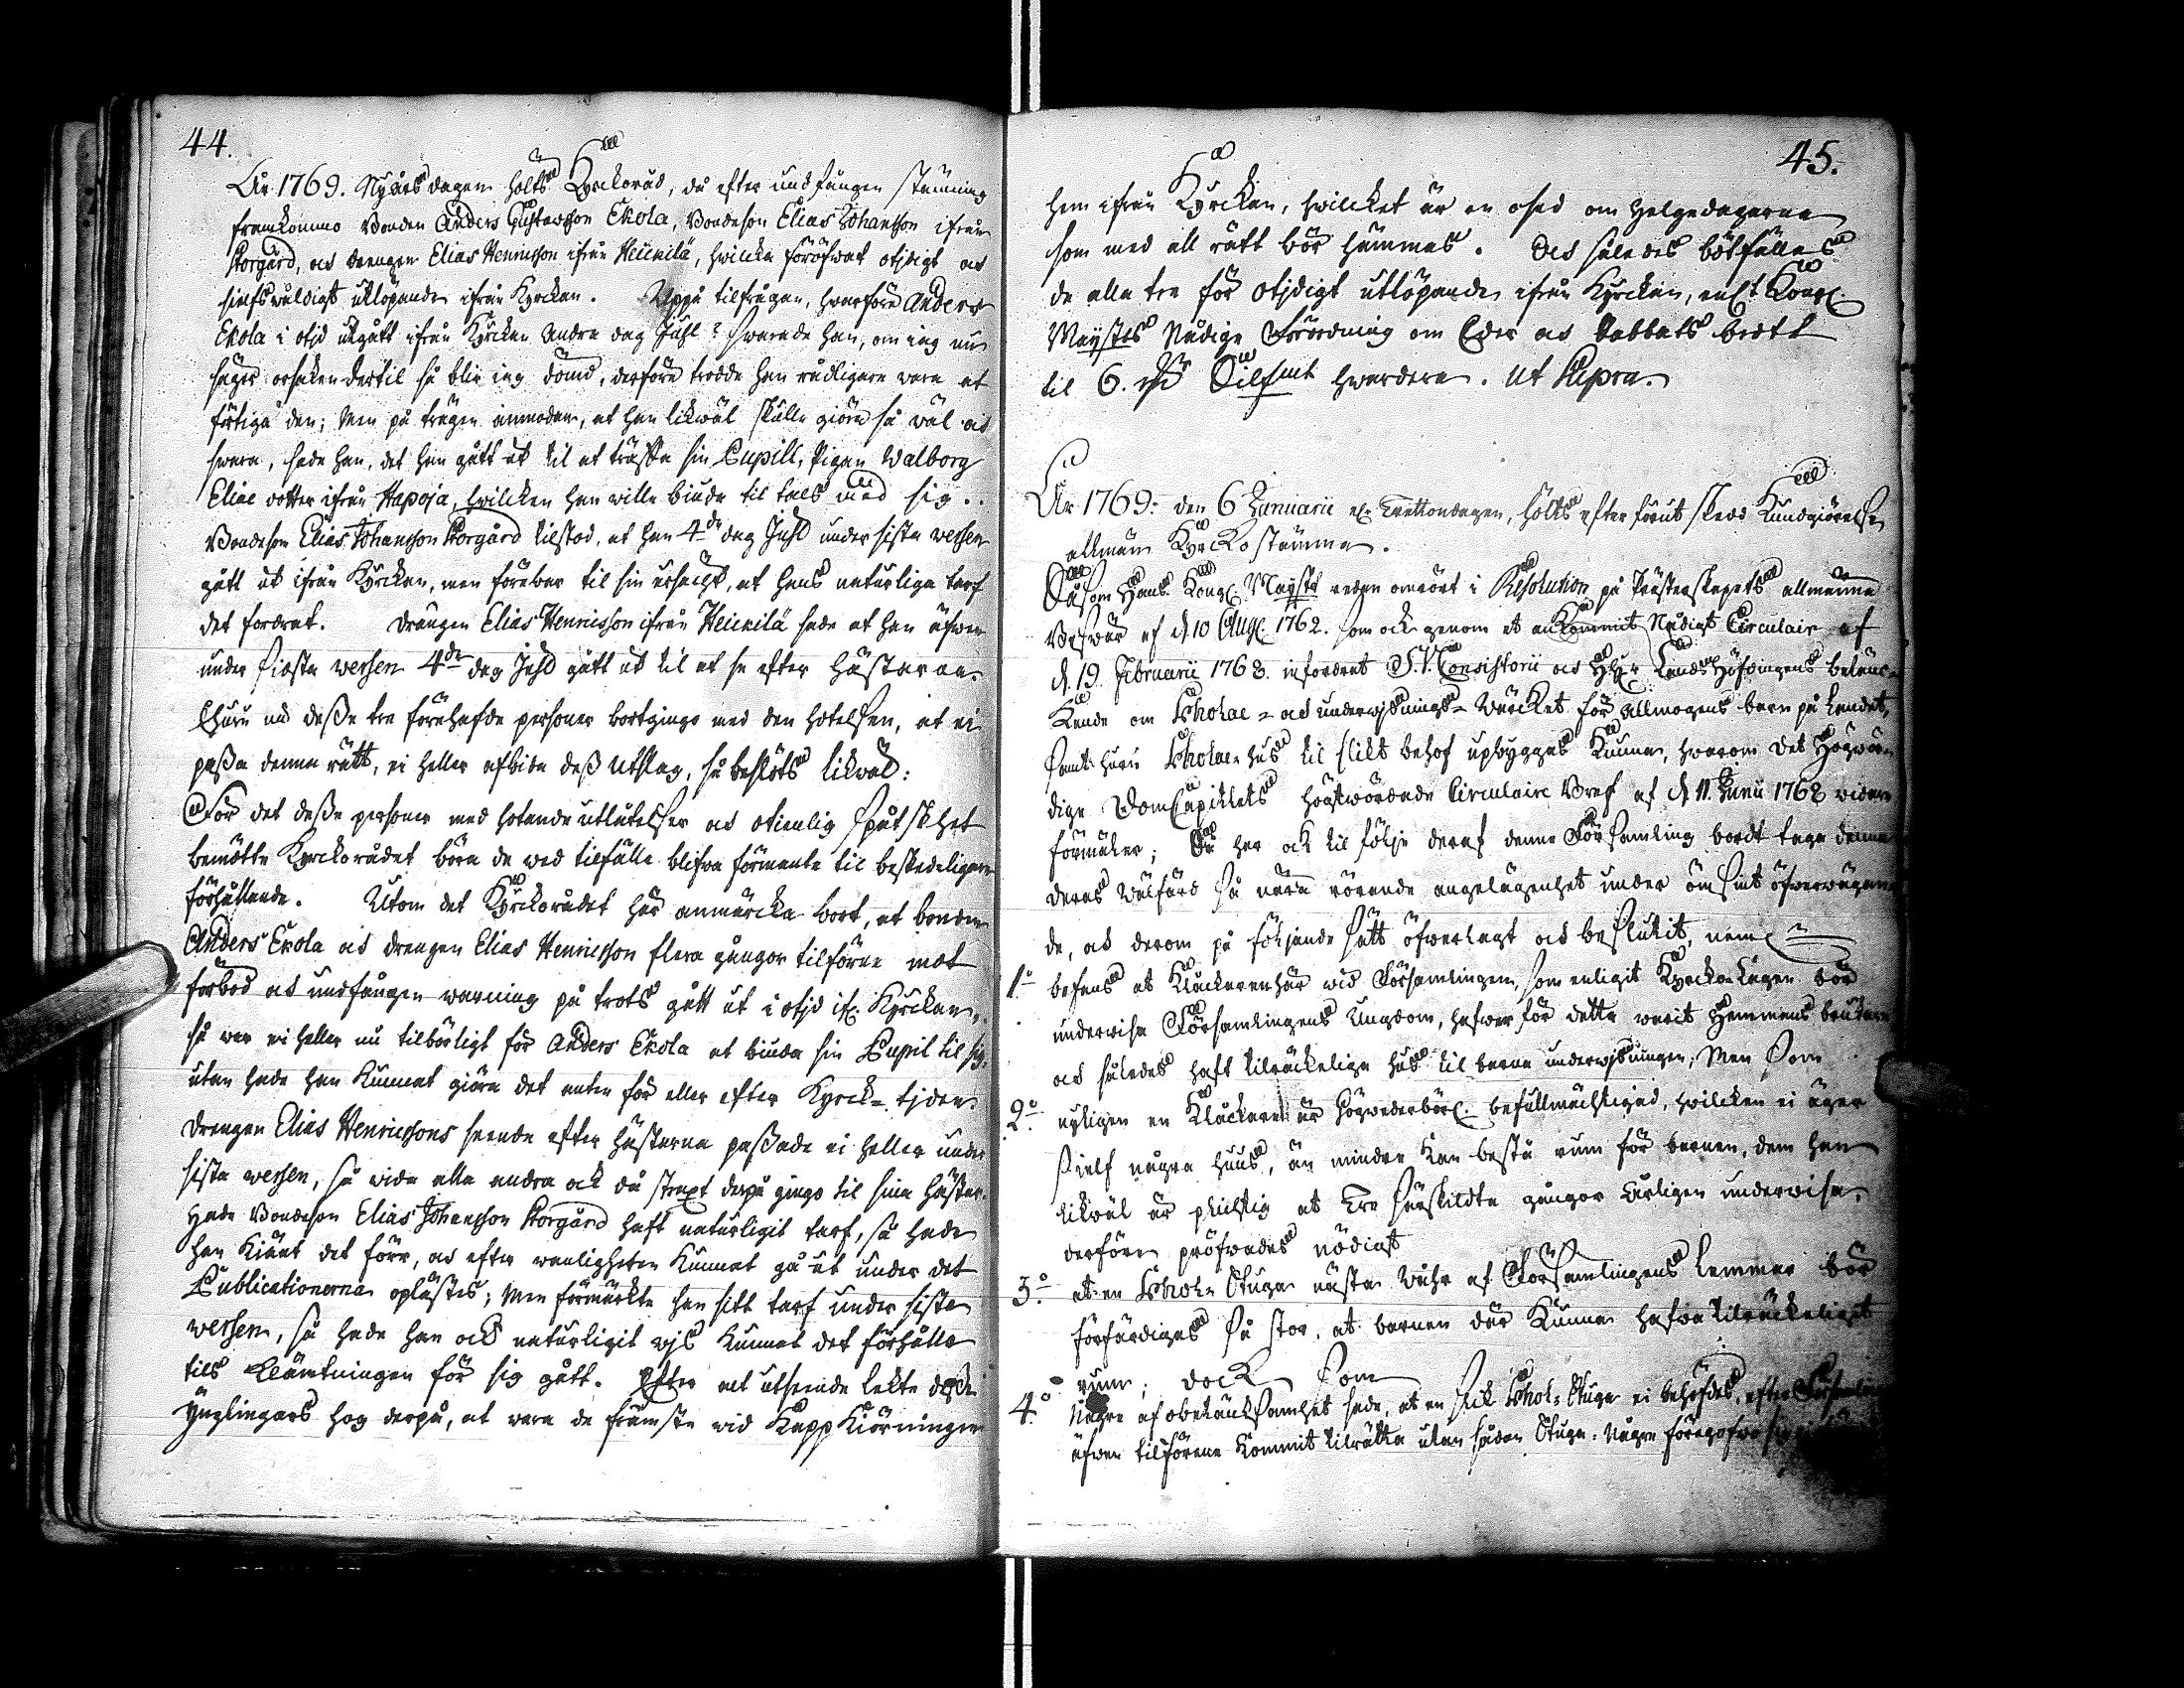 44.
År 1769. Nyårs dagen hölts Kyrckoråd, då efter undfången stämning
framkommo Bonden Anders Gustavsson Ekola, Bondeson Elias Johansson ifrån
Storgård, och drengen Elias Henricsson ifrån Heickilä, hvilcka föröfwat otidigt och
sielfswåldigt utlöpande ifrån Kyrckan. Uppå tilfrågan, hwarföre Anders
Ekola i otid utgått ifrån Kyrckan Andra dag Juhl? swarade han, om jag nu
säger orsaken dertil så blir jag dömd, derföre trodde han rådligare wara at
förtiga den; Men på trägen anmodan, at han likwäl skulle giöra så wäl och
swara, sade han, det han gått ut til at träffa sin Pupill, Pigan Walborg
Eliae dotter ifrån Hapoja, hwilcken han wille biuda til taels med sig.
Bondeson Elias Johansson Storgård tilstod, at han 4de dag Juhl under sista versen
gått ut ifrån Kyrckan, men förebar til sin ursächt, at hans naturliga tarf
det fordrat. Drängen Elias Henricsson ifrån Heickilä sade at han äfwen
under sidsta versen 4de dag Juhl gått ut til at se efter Hästarne.
Ehuru nu desse tre förehafde personer bortgingo med den hotelsen, at ei
passa denna rätt, ei heller afbida dess Utslag, så beslöts likwäl:
För det desse personer med hotande utlåtelser och otienlig spåtskhet
bemött Kyrckorådet böra de wed tilfälle blifwa förmante til beskedeligare
förhållande. Utom det Kyrckorådet här anmärcka bort, at bonden
Anders Ekola och drengen Elias Henricsson flera gångor tilförne mot
förbod och undfången warning på trots gått ut i otid if: Kyrckan,
så war ei heller nu tilbörligt för Anders Ekola at biuda sin Pupil til sig,
utan hade han kunnat giöra det anten för eller efter Kyrck-tjden.
Drengen Elias Henricssons seende efter hästarna passade ei heller under
sista versen, så wida alla andra ock då straxt derpå gingo til sina hästar.
Hade Bondeson Elias Johansson Storgård haft naturligit tarf, så hade
han känt det förr, och efter wanligheten kunnat gå ut under det
Publicationerna oplästes; Men förmärkte han sitt tarf under sista
versen, så hade han och naturligit wjs kunnat det förhålla
tils Klämtningen för sig gått. Efter alt utseende lekte desse
ynglingars hog derpå, at wara de främste wid Kapp Kiörningen
45.
hem ifrån Kyrckan, hwilcket är en osed om Helgedagarna
som med all rätt bör hämmas. Och således bötfälles
de alla tre för otjdigt utlöpande ifrån Kyrckan, enl:t Kongl.
Maystts Nådige Förordning om Eder och Sabbats brott
til 6. Silfmt hwardera. Ut Supra.
År 1769: den 6 Januarii el: Trettondagen, hölts efter förut skedd Kundgiörelse
allmän Kyrckostämma.
Såsom Hans Kongl. Mayst redan omrört i Resolution på Prästerskapets allmänna
Beswär af d. 10 Aug: 1762. som ock genom et ankommit Nådigt Circulair af
d. 19 Februarii 1768. infordrat S.V. Consistorii och Herr Lands Höfdingens betänc-
kande om Scholae- och underwjsnings-Wärcket för Allmogens barn på Landet,
samt huru Scholae-hus til slikt behof upbyggas kunna, hwarom det Högwär-
dige DomCapitlets högtwördade Circulaire Bref af d. 11. Junii 1768 widare
förmäler; Så har ock til följe deraf denna Församling bordt taga denna
deras Wälfärd så nära rörande angelägenhet under ömsint öfwerwägan-
de, och derom på följande sätt öfwerlagt och beslutit, neml:
1o befans at Klåckaren här wid Församlingen, som enligit Kyrcko Lagen bör
underwisa Församlingens Ungdom, hafwer för detta warit Hemmans brukare
och således haft tilräckeliga hus til barna underwjsningen; Men som
2o nyligen en Klåckare är högwederbörl. befullmächtigad, hwilcken ei äger
sielf några huus, än mindre kan bestå rum för barnen, dem han
likwäl är plichtig at Tre särskildta gångor årligen underwisa,
derföre pröfwades nödigt
3o at en Schol-Stuga nästa Wåhr af Församlingens Lemmar bör
förfärdigas så stor, at barnen der kunna hafwa tilräckeligit
rum; dock som
4o Någre af obetänksamhet sade, at en slik Schol-Stuga ei behöfdes, efter
äfwen tilförene kommit tilrätta utan sådan Stuga. Någre föregofwo